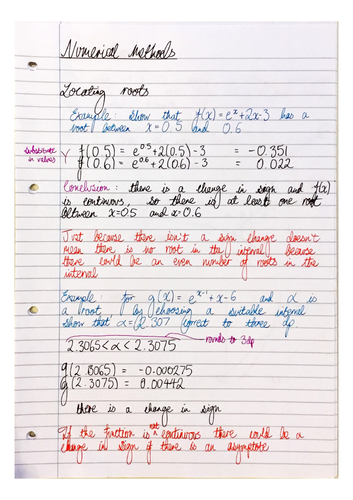 Numerical Methods
Locating roots
Example: Show that f(x)=eˣ+2x-3 has a
root between x=0.5 and 0.6
substitute in values
f(0.5) = e^0.5+2(0.5)-3 = -0.351
f(0.6) = e^0.6+2(0.6)-3 = 0.022
Conclusion: there is a change in sign and f(x)
is continuous, so there is at least one root
between x=0.5 and x=0.6
Just because there isn't a sign change doesn't
mean there is no root in the interval because
there could be an even number of roots in the
interval
Example: for g(x) = e^x-1 + x-6 and α is
a root, by choosing a suitable interval
show that α=2.307 correct to three dp
2.3065<α<2.3075
rounds to 3dp
g(2.3065) = -0.000275
g(2.3075) = 0.00442
there is a change in sign
If the function is not continuous there could be a
change in sign if there is an asymptote